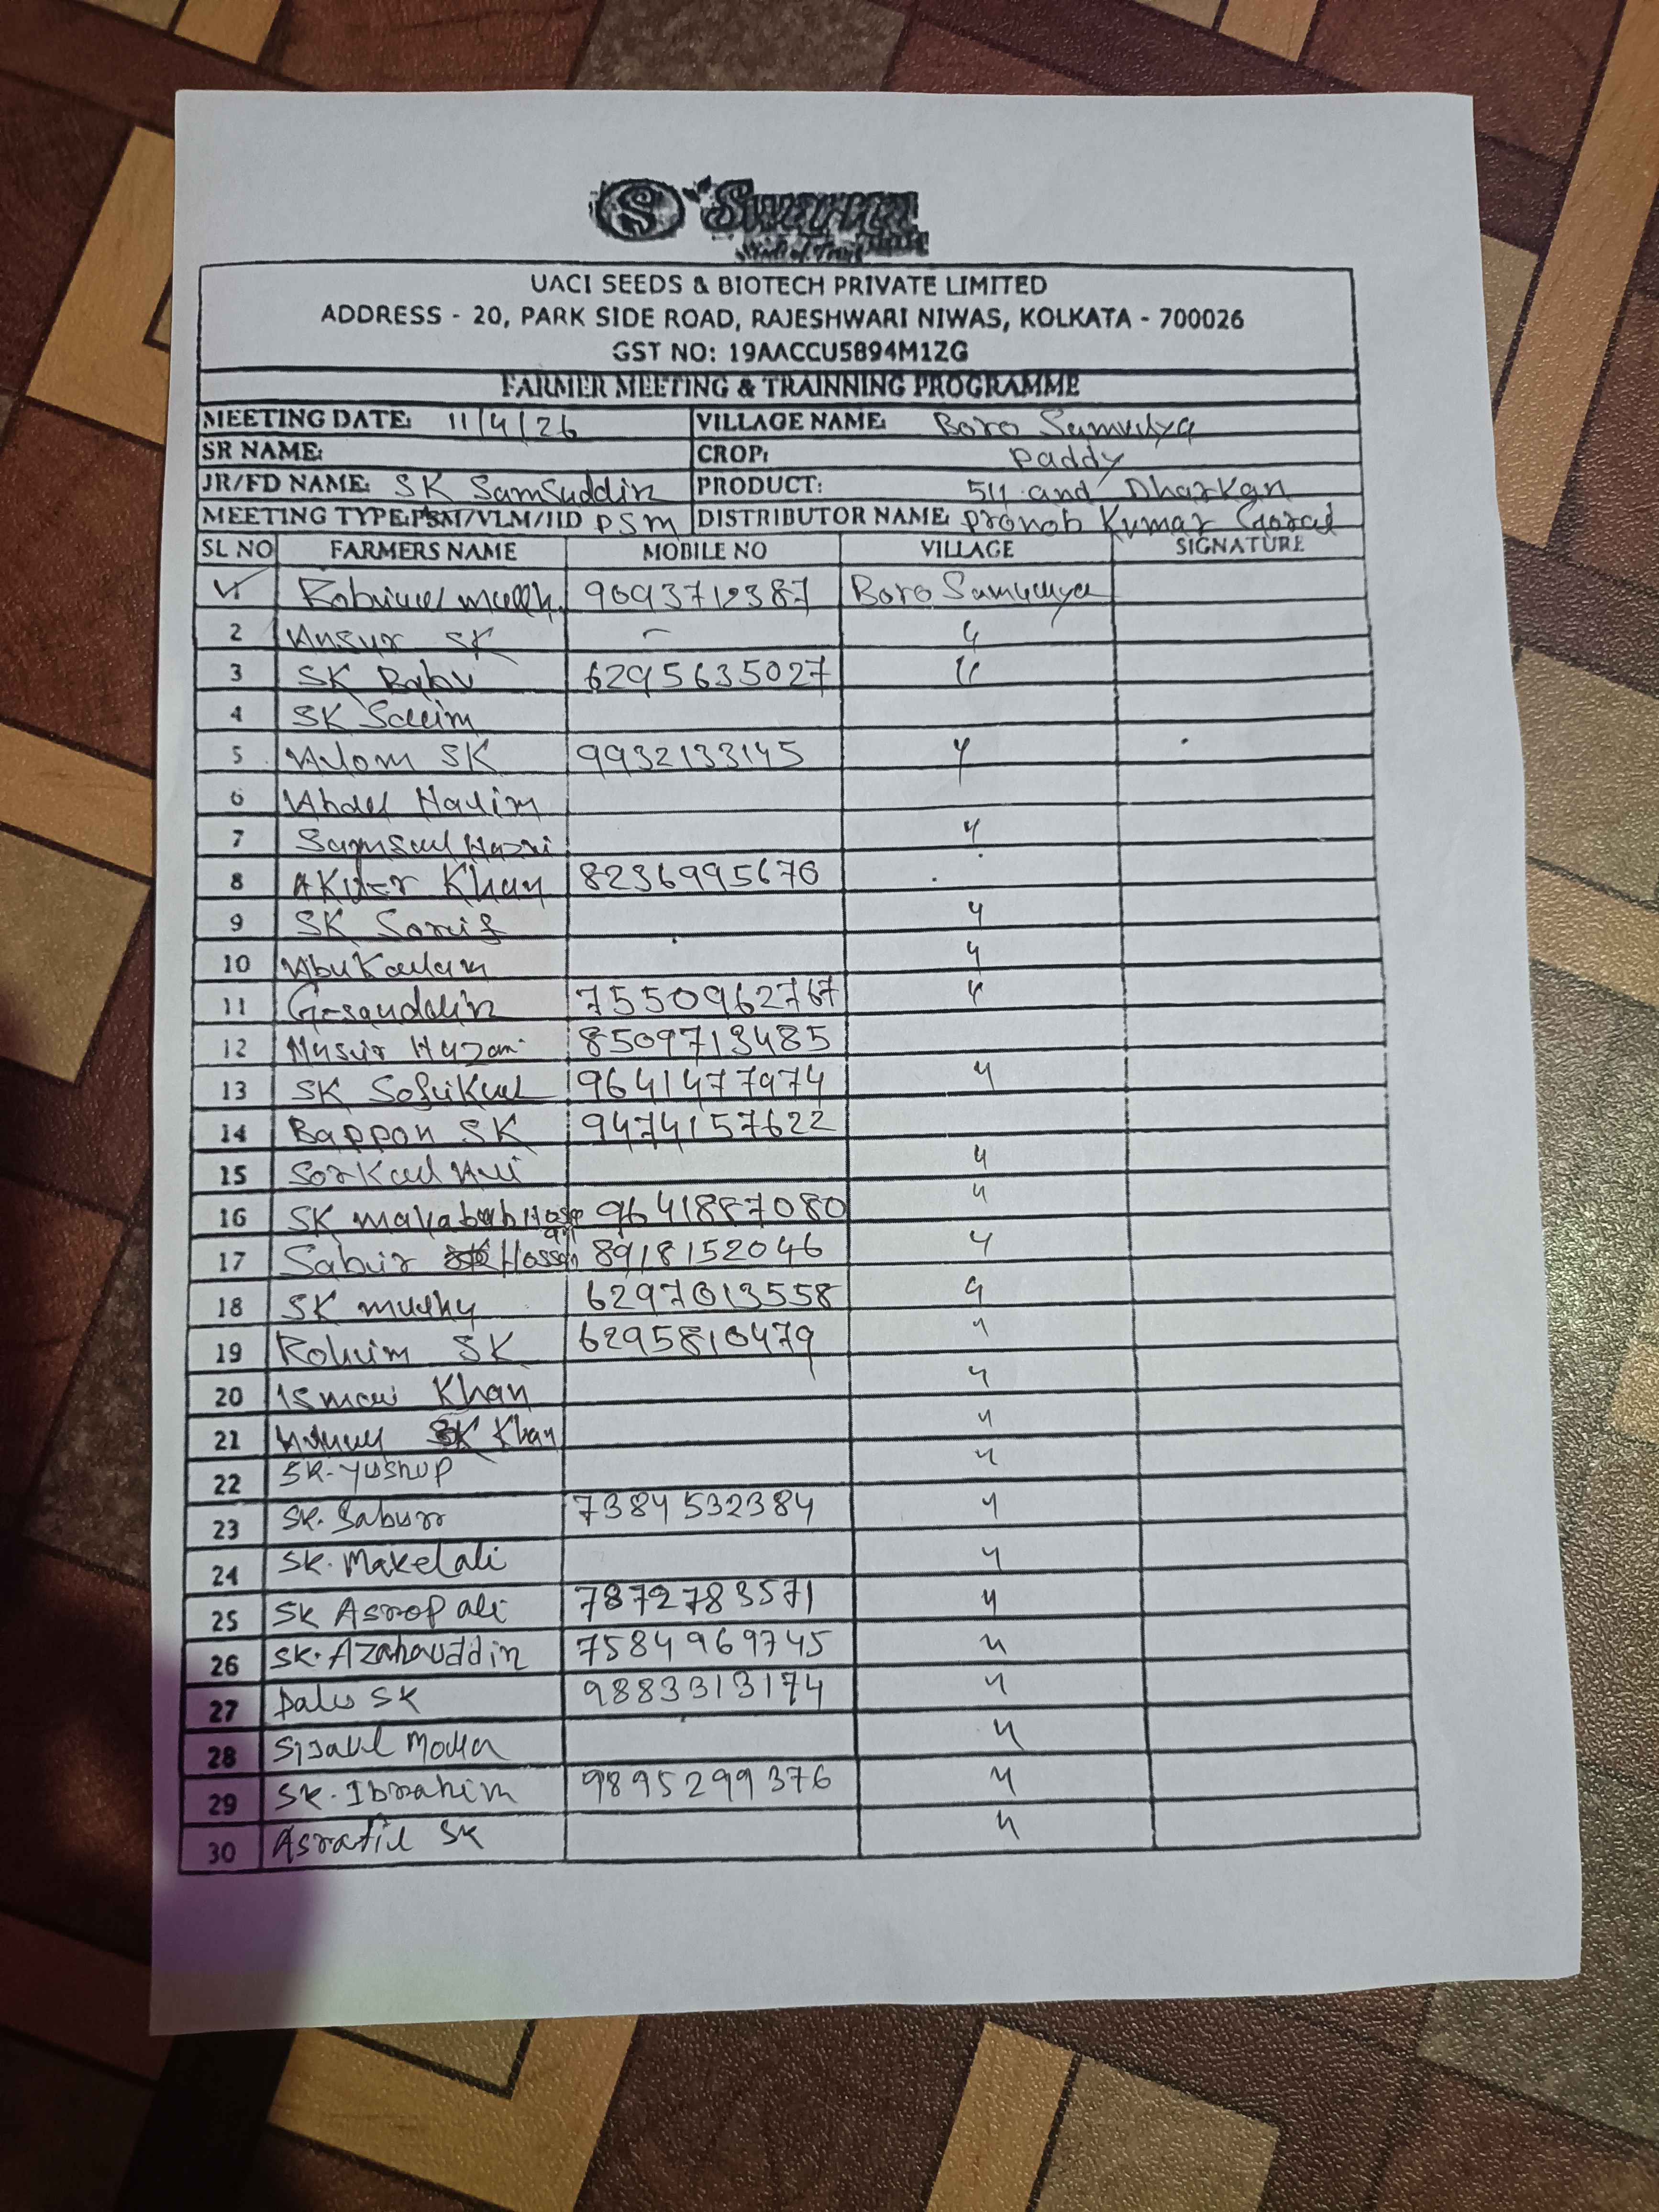 S Swarna
UACI SEEDS & BIOTECH PRIVATE LIMITED
ADDRESS - 20, PARK SIDE ROAD, RAJESHWARI NIWAS, KOLKATA - 700026
GST NO: 19AACCU5894M1ZG
FARMER MEETING & TRAINNING PROGRAMME
MEETING DATE: 11/4/26 VILLAGE NAME: Boro
SR NAME: CROP: Paddy
JR/FD NAME: SK Samsuddin PRODUCT: 511 and Dharkan
MEETING TYPE: PSM/VLM/JID PSM DISTRIBUTOR NAME: Pronob Kumar
SL NO FARMERS NAME MOBILE NO VILLAGE SIGNATURE
1 9093712387 Boro
2 Ansur SK - "
3 SK Babu 6295635027 "
4 SK Salim
5 Alom SK 9932133145 "
6 Abdul Halim
7 Samsul "
8 Khan 8236995670
9 SK Sarif "
10 Abu Kalam "
11 7550962767 "
12 8509713485
13 SK Sofikul 9641477974 "
14 Bappon SK 9474157622
15 "
16 SK 9641887080 "
17 Sabir Hossen 8918152046 "
18 SK 6297013558 "
19 Rohim SK 6295810479 "
20 Khan "
21 Khan "
22 SK. Yushup "
23 SK. Saburr 7384532384 "
24 SK. Makelali "
25 SK Asrop ali 7872783571 "
26 SK. Azaharuddin 7584969745 "
27 Dalu SK 9883313174 "
28 "
29 SK. Ibrahim 9895299376 "
30 Asrafil SK "